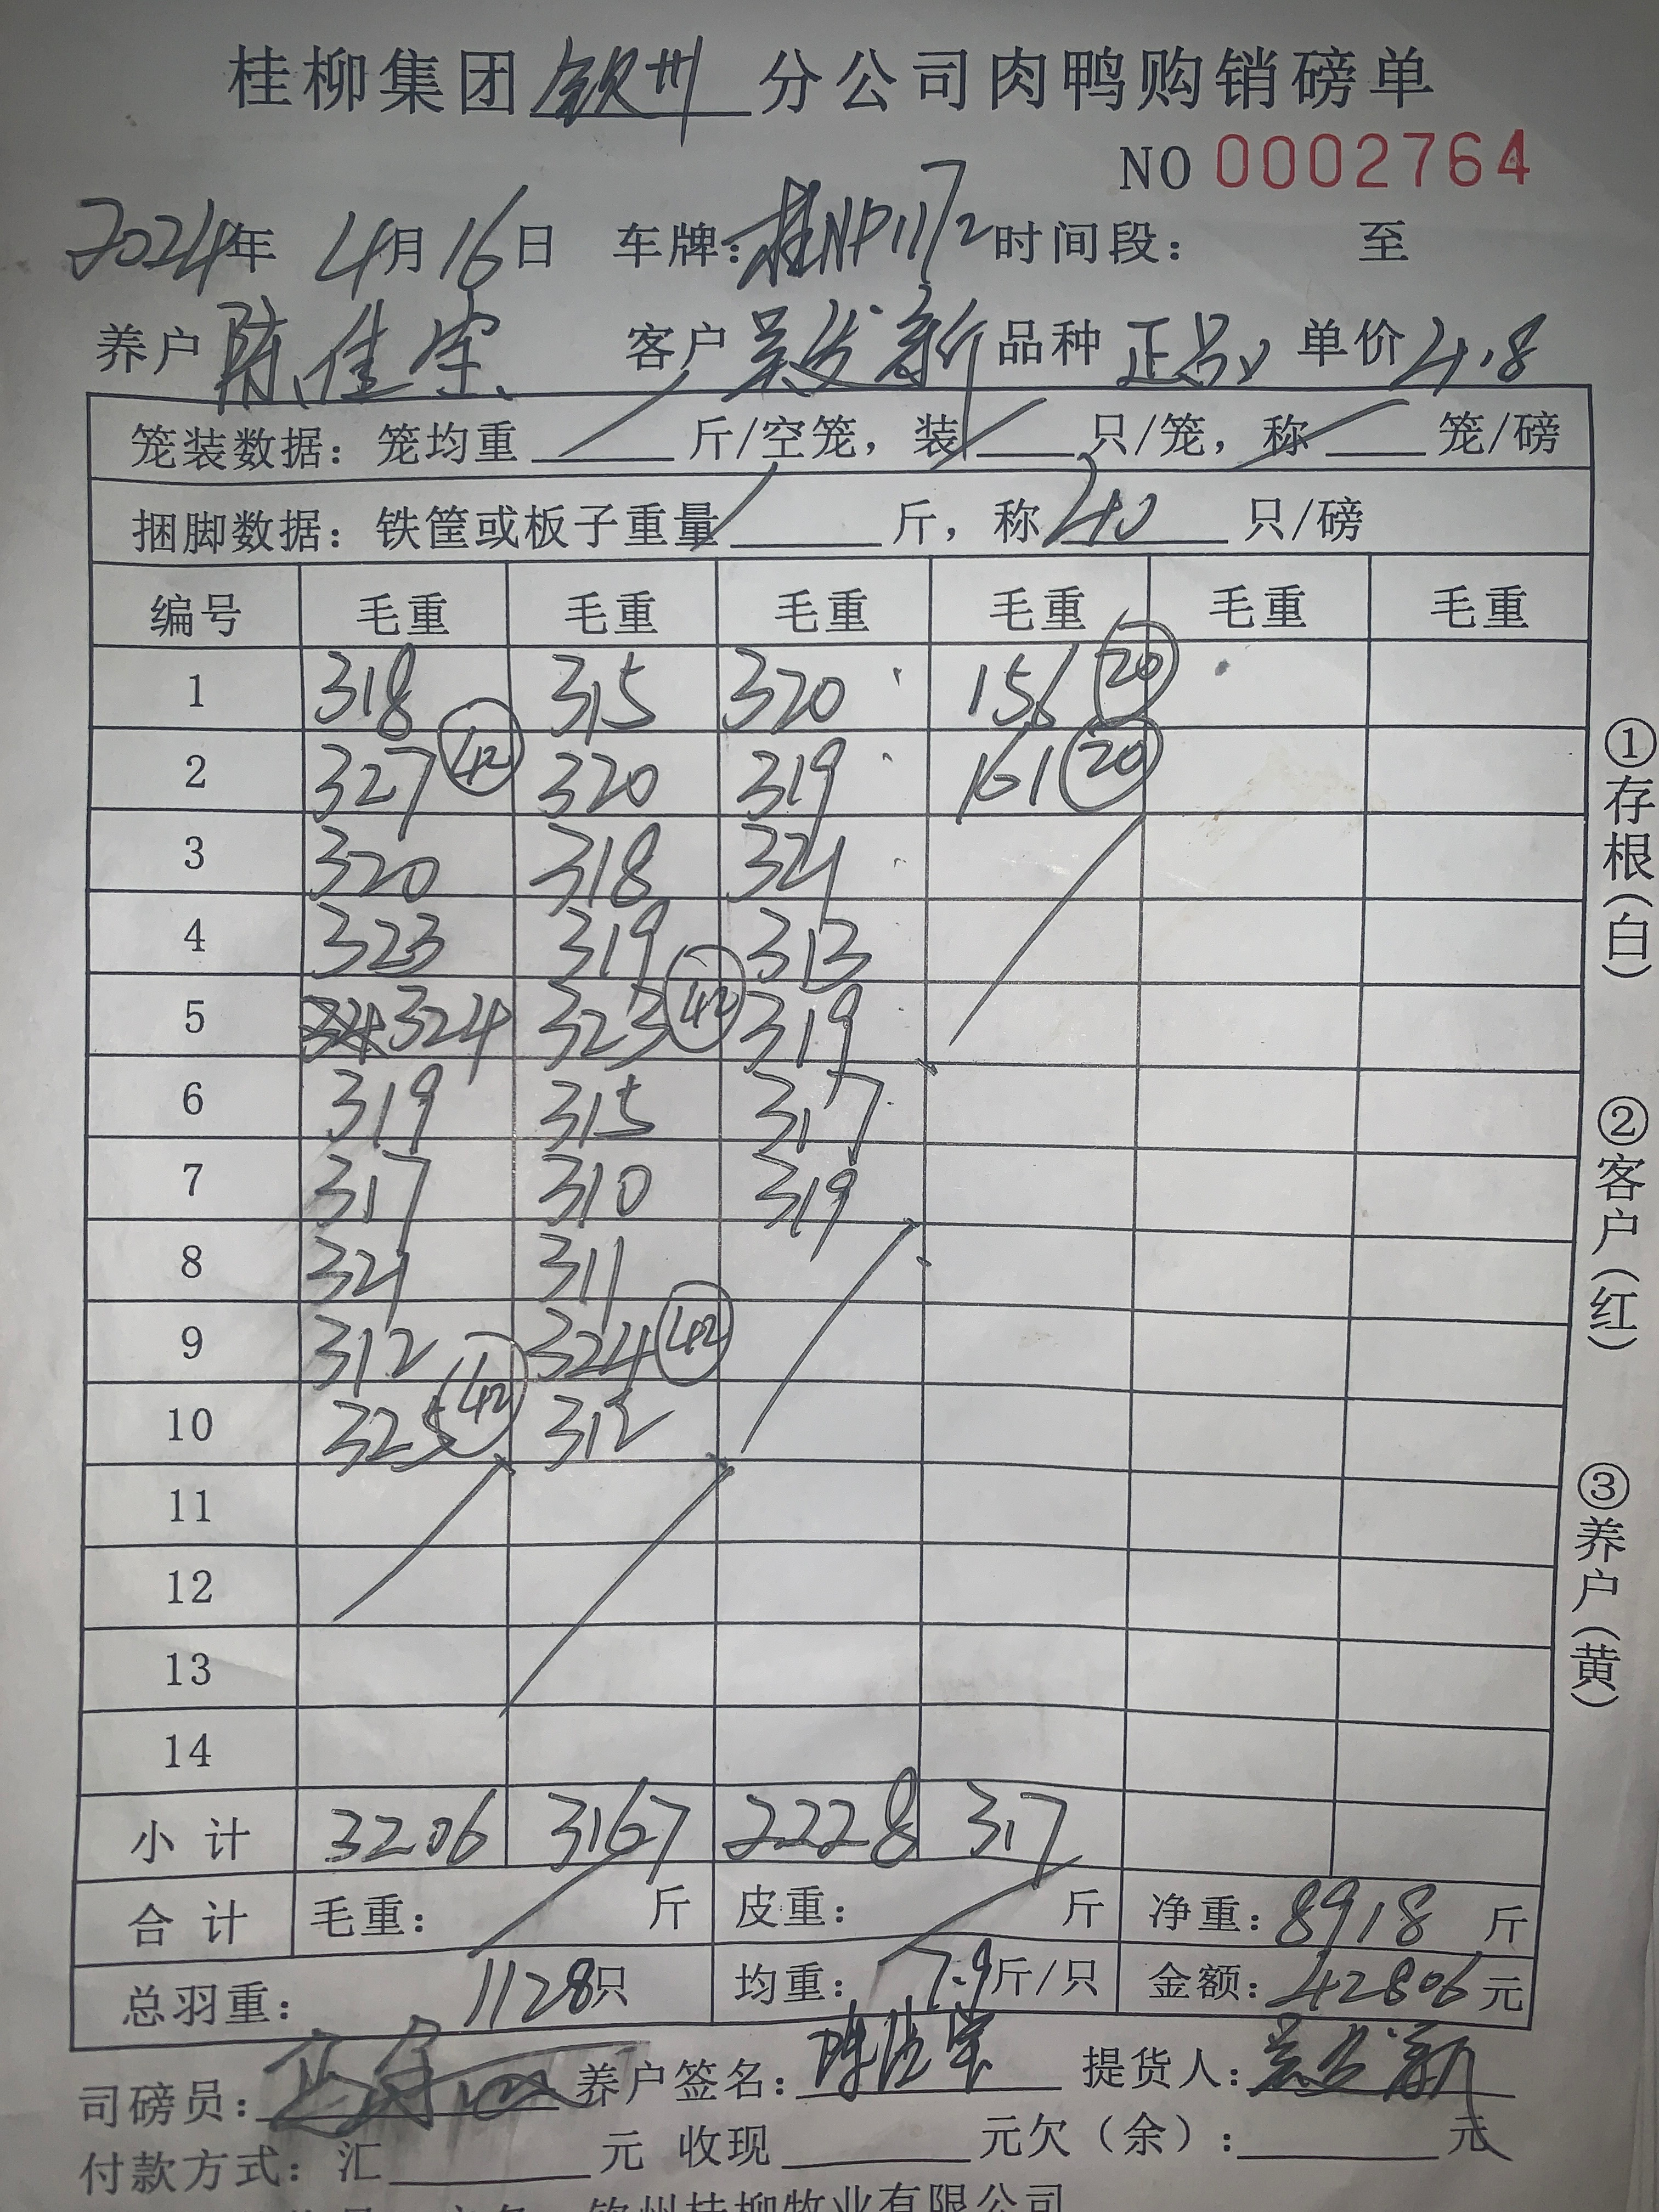 桂柳集团钦州分公司肉鸭购销磅单
NO 0002764
2024年 4月16日 车牌:桂NP1172 时间段: 至
养户 陈佳宗 客户 吴发新 品种 正品 单价 4.8
笼装数据: 笼均重 斤/空笼, 装 只/笼, 称 笼/磅
捆脚数据: 铁筐或板子重量 斤, 称 40 只/磅
编号 毛重 毛重 毛重 毛重 毛重 毛重
1 318 315 320 156 (20)
2 327 (42) 320 319 161 (20)
3 320 318 321
4 323 319 313
5 324 323 (42) 319
6 319 315 317
7 317 310 319
8 321 311
9 312 324 (42)
10 325 (42) 312
11
12
13
14
小计 3206 3167 2228 317
合计 毛重: 斤 皮重: 斤 净重: 8918 斤
总羽重: 1128只 均重: 7.9斤/只 金额: 42806元
司磅员: 养户签名: 陈佳宗 提货人: 吴发新
付款方式: 汇 元 收现 元欠(余): 元
钦州桂柳牧业有限公司
①存根(白)
②客户(红)
③养户(黄)